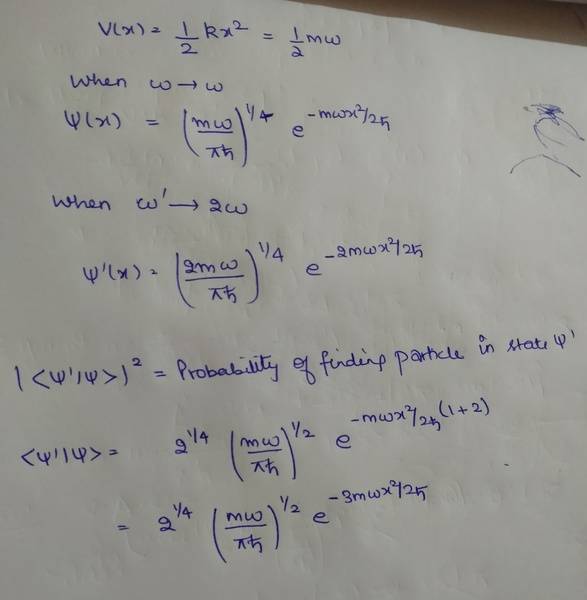 V(x) = 1/2 kx² = 1/2 mω
When ω → ω
Ψ(x) = (mω/πħ)^1/4 e^-mωx²/2ħ
When ω' → 2ω
Ψ'(x) = (2mω/πħ)^1/4 e^-2mωx²/2ħ
|<Ψ'|Ψ>|² = Probability of finding particle in state Ψ'
<Ψ'|Ψ> = 2^1/4 (mω/πħ)^1/2 e^-mωx²/2ħ(1+2)
= 2^1/4 (mω/πħ)^1/2 e^-3mωx²/2ħ